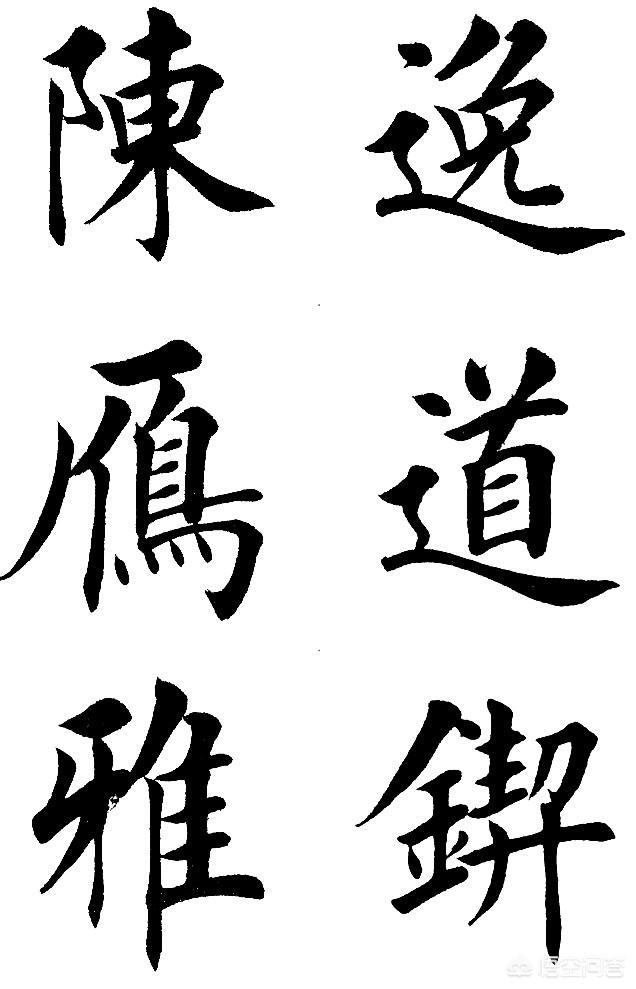 逸道鍥
陳鴈雅
悟空问答